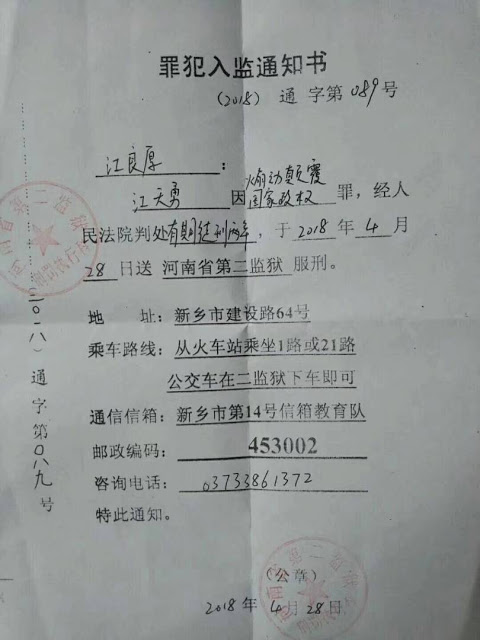 罪犯入监通知书
(2018) 通 字第 089 号
江良厚 :
江天勇 因 煽动颠覆国家政权 罪，经人
民法院判处有期徒刑两年，于 2018 年 4 月
28 日送 河南省第二监狱 服刑。
地 址: 新乡市建设路64号
乘车路线: 从火车站乘坐1路或21路
公交车在二监狱下车即可
通信信箱: 新乡市第14号信箱教育队
邮政编码: 453002
咨询电话: 03733861372
特此通知。
(公章)
2018 年 4 月 28 日
(二〇一八) 通字第〇八九号
河南省第二监狱
刑罚执行
河南省第二监狱